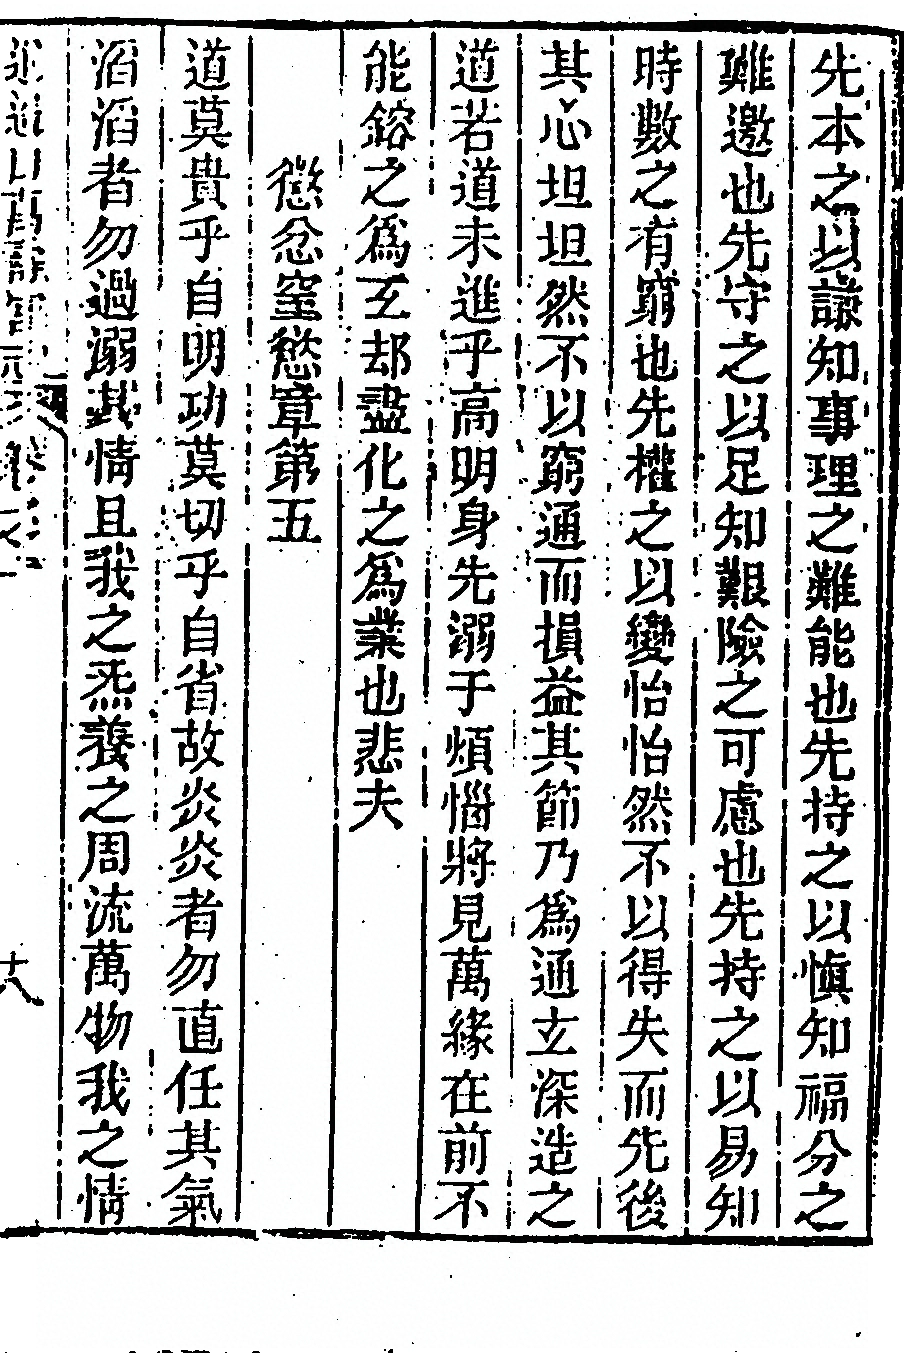 先本之以謙知事理之難能也先持之以愼知福分之
難邀也先守之以足知艱險之可慮也先持之以易知
時數之有窮也先權之以變怡怡然不以得失而先後
其心坦坦然不以窮通而損益其節乃爲通玄深造之
道若道未進乎高明身先溺于煩惱將見萬緣在前不
能鎔之爲玄却盡化之爲業也悲夫
懲忿窒慾章第五
道莫貴乎自明功莫切乎自省故炎炎者勿直任其氣
滔滔者勿過溺其情且我之炁養之周流萬物我之情
十八